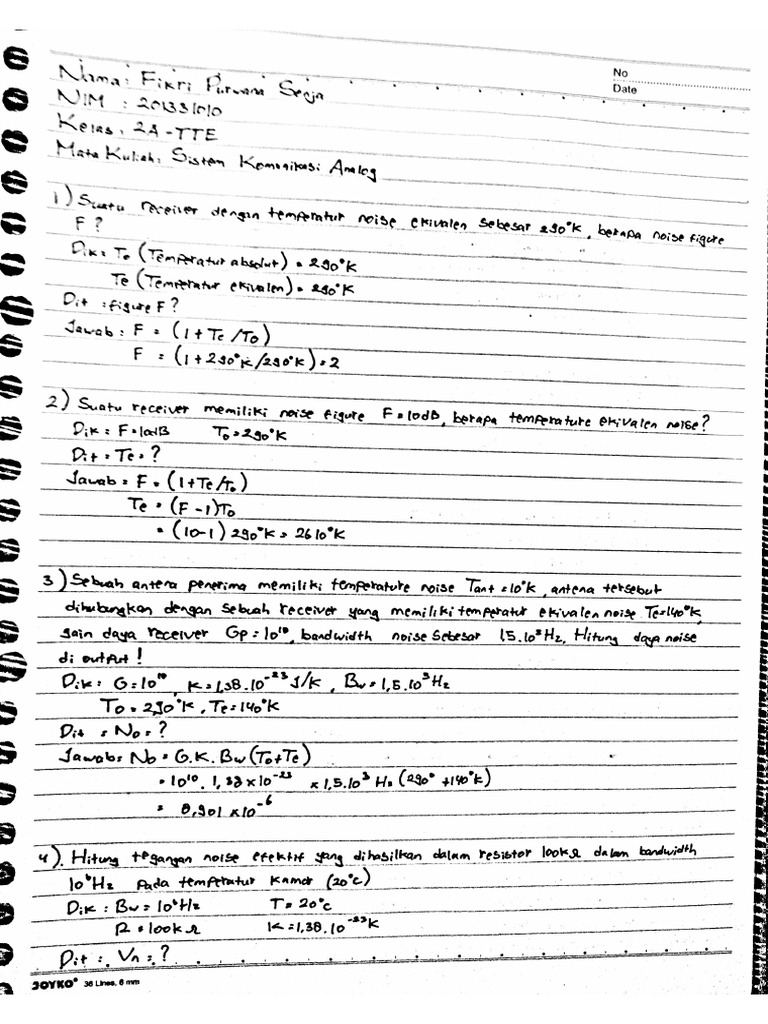 No
Date
Nama : Fikri Purwana Senja
NIM : 201331010
Kelas : 2A-TTE
Mata Kuliah : Sistem Komunikasi Analog
1) Suatu receiver dengan temperatur noise ekivalen sebesar 290°K, berapa noise figure
F ?
Dik = To (Temperatur absolut) = 290°K
Te (Temperatur ekivalen) = 290°K
Dit : figure F ?
Jawab : F = (1 + Te/To)
F = (1 + 290°K/290°K) = 2
2) Suatu receiver memiliki noise figure F = 10dB, berapa temperature ekivalen noise?
Dik : F = 10dB To = 290°K
Dit = Te = ?
Jawab = F = (1 + Te/To)
Te = (F - 1)To
= (10-1) 290°K = 2610°K
3) Sebuah antena penerima memiliki temperature noise Tant = 10°K, antena tersebut
dihubungkan dengan sebuah receiver yang memiliki temperatur ekivalen noise Te = 140°K,
gain daya receiver Gp = 10¹⁰, bandwidth noise sebesar 1,5.10³Hz, Hitung daya noise
di output !
Dik : G = 10¹⁰, K = 1,38.10⁻²³ J/K, Bw = 1,5.10³Hz
To = 290°K, Te = 140°K
Dit = No = ?
Jawab = No = G.K.Bw (To + Te)
= 10¹⁰. 1,38 x 10⁻²³ x 1,5.10³ Hz (290° + 140°K)
= 8,901 x 10⁻⁶
4). Hitung tegangan noise efektif yang dihasilkan dalam resistor 100kΩ dalam bandwidth
10⁶Hz pada temperatur kamar (20°c)
Dik : Bw = 10⁶Hz T = 20°c
R = 100kΩ K = 1,38.10⁻²³K
Dit : Vn = ?
JOYKO® 36 Lines, 6 mm